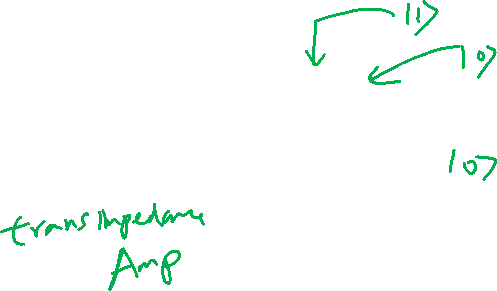 |1⟩
|0⟩
|0⟩
transimpedance
Amp